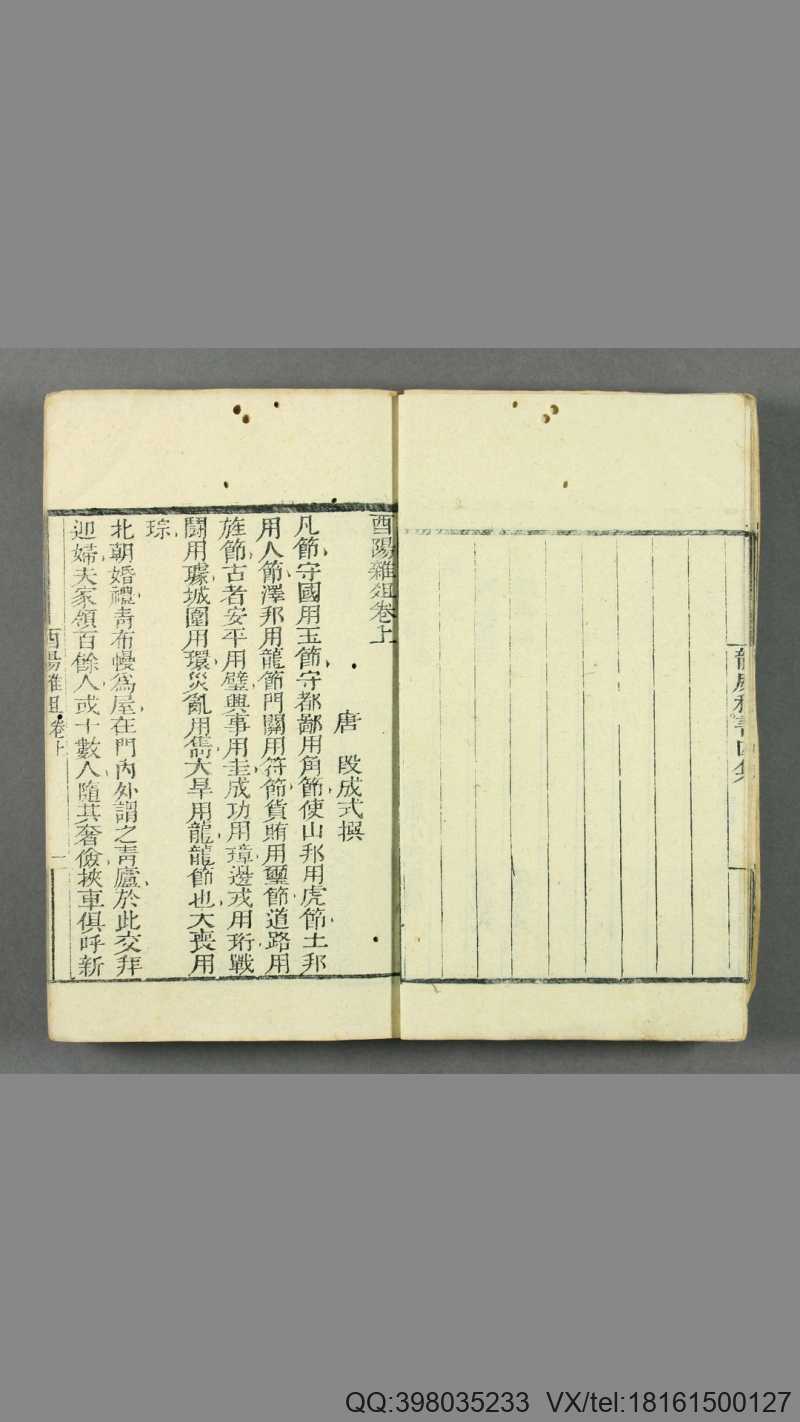 酉陽雜俎卷上
唐 段成式撰
凡節守國用玉節守都鄙用角節使山邦用虎節土邦
用人節澤邦用龍節門關用符節貨賄用璽節道路用
旌節古者安平用璧興事用圭成功用璋邊戎用珩戰
鬪用璩城圍用環災亂用雋大旱用龍龍節也大喪用
琮
北朝婚禮青布幔爲屋在門內外謂之青廬於此交拜
迎婦夫家領百餘人或十數人隨其奢儉挾車俱呼新
酉陽雜俎卷上 一
QQ:398035233 VX/tel:18161500127